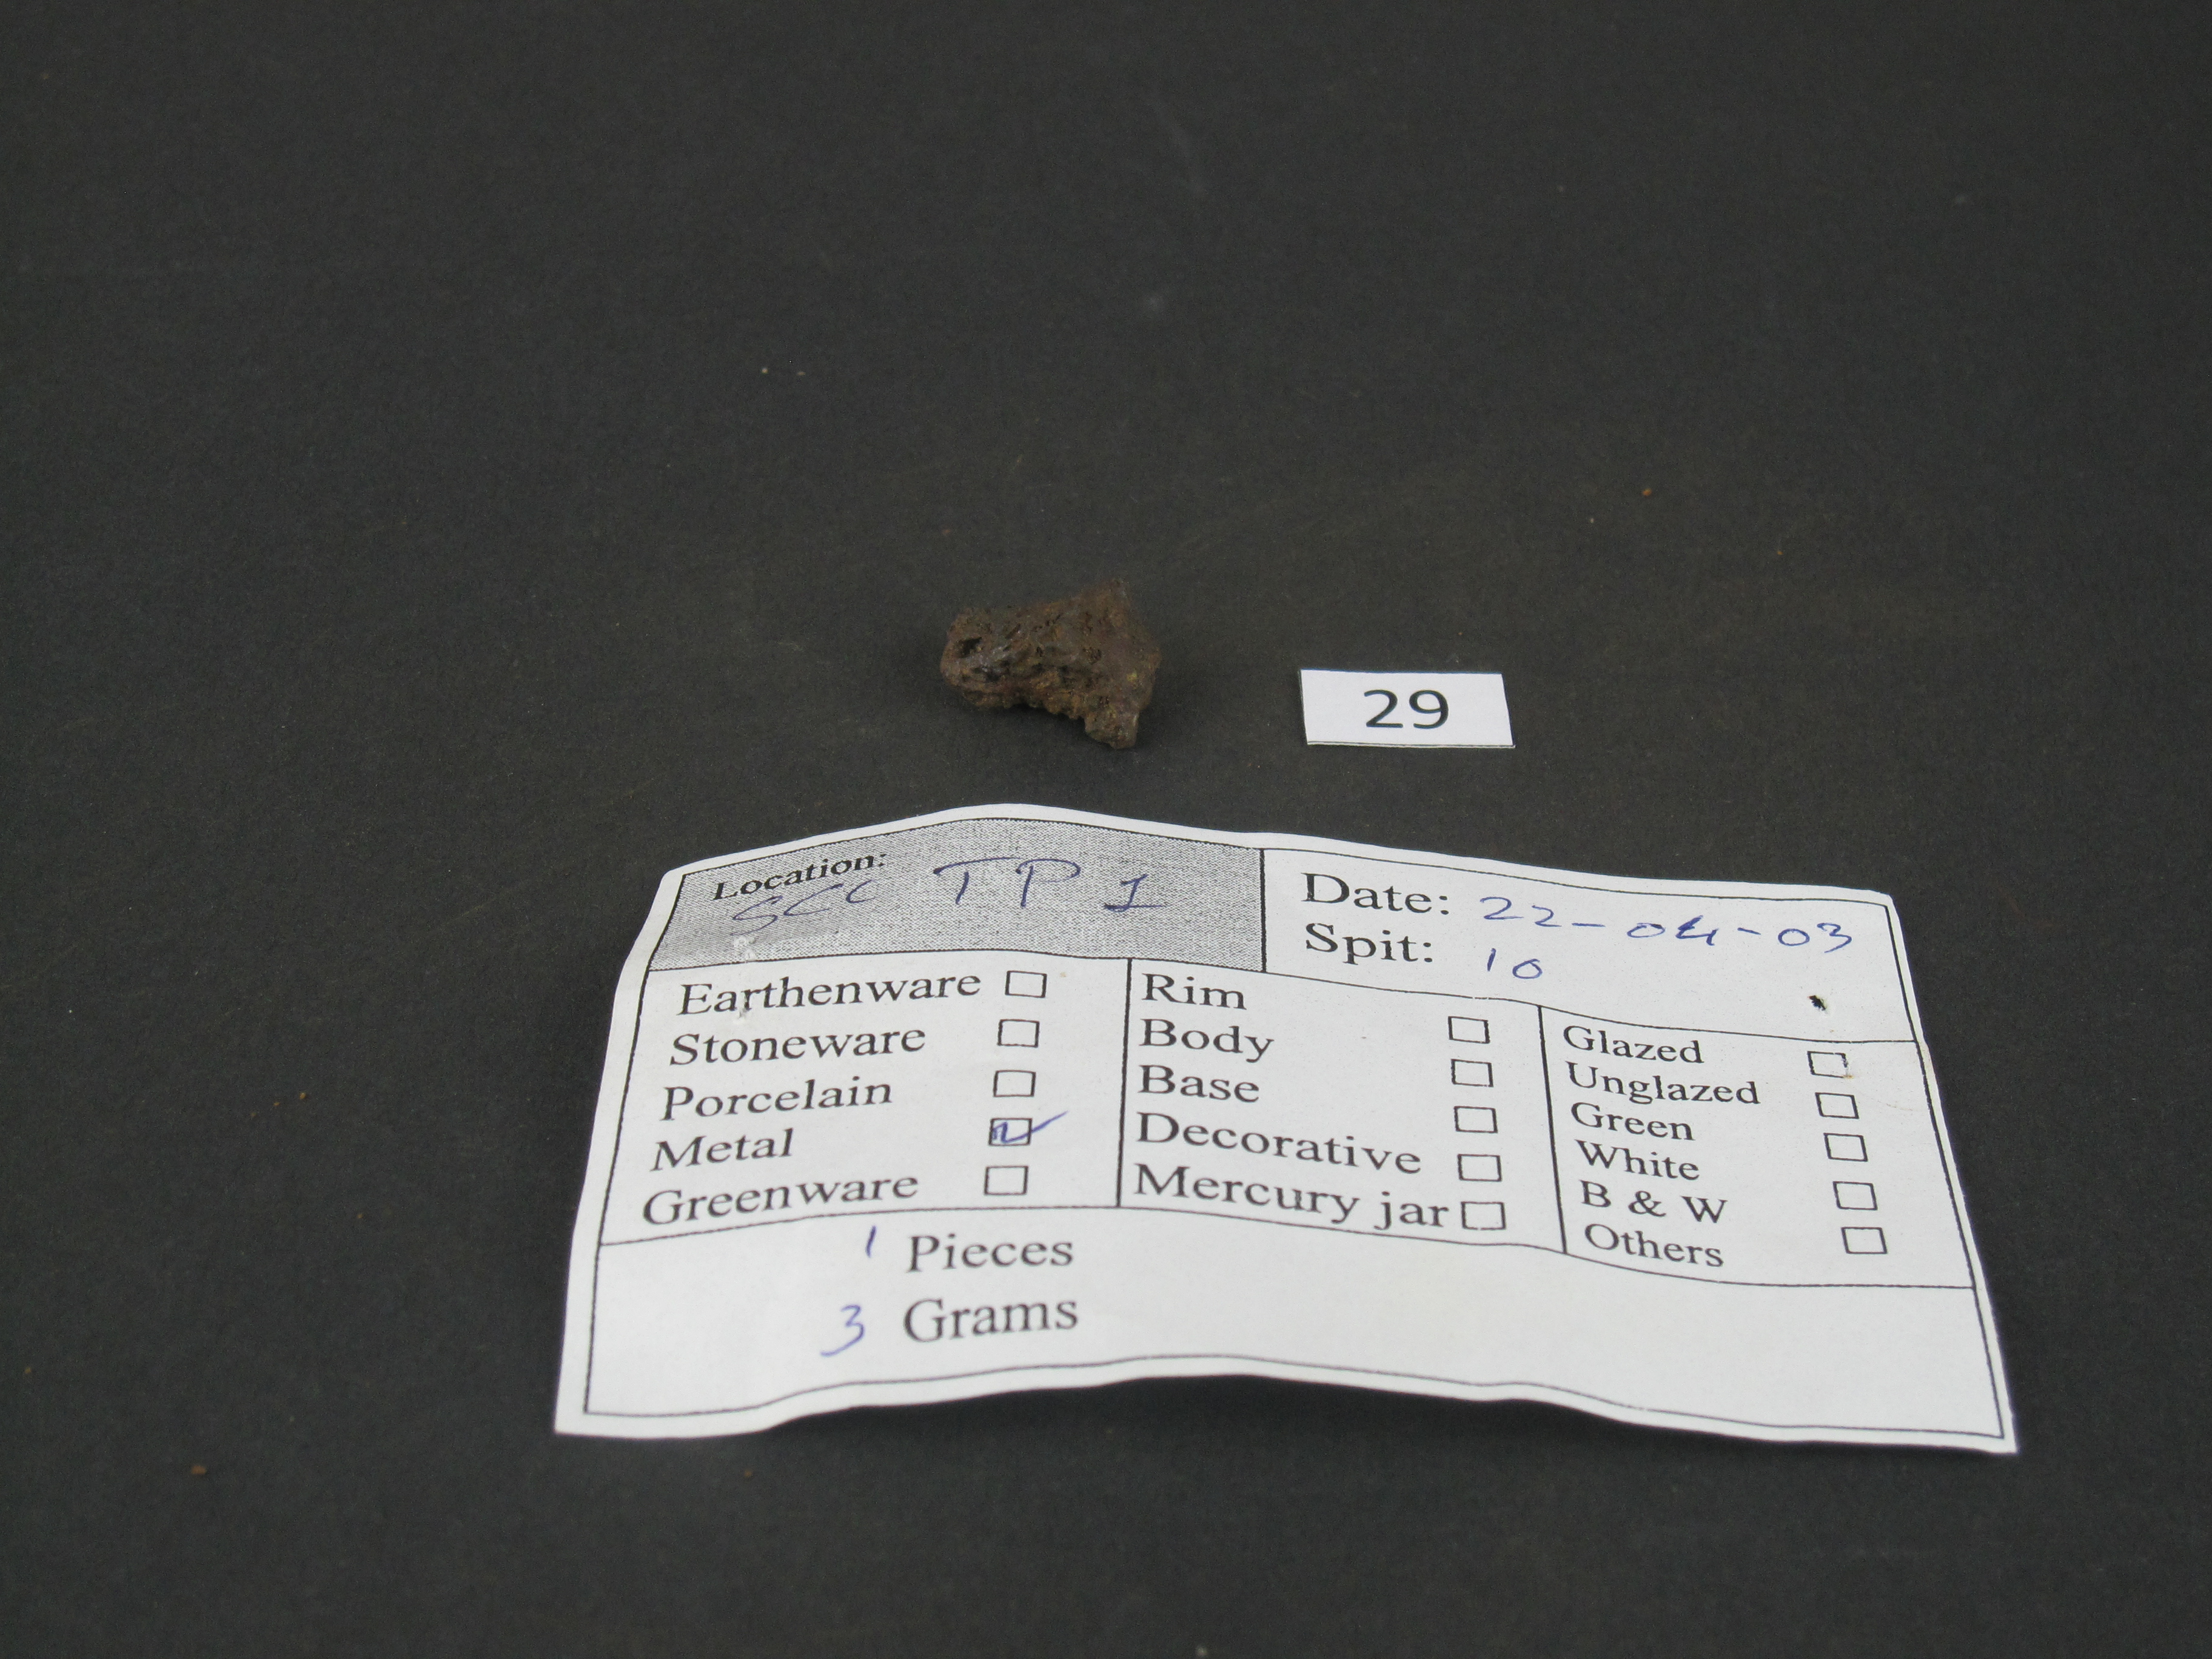 29
Location:
SCC TP 1
Date: 22-04-03
Spit: 10
Earthenware
Stoneware
Porcelain
Metal
Greenware
Rim
Body
Base
Decorative
Mercury jar
Glazed
Unglazed
Green
White
B & W
Others
1 Pieces
3 Grams